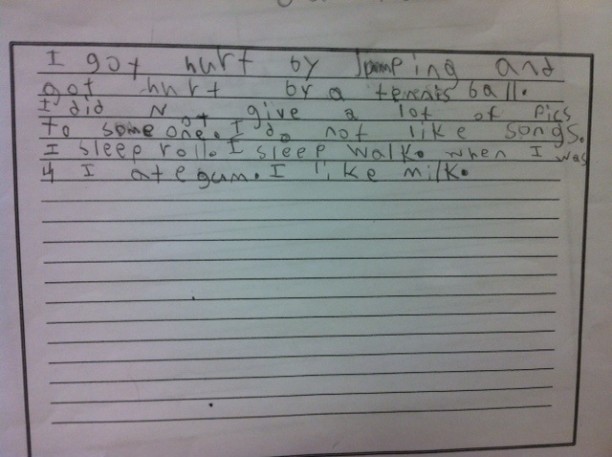 I got hurt by Jumping and
got hurt by a tennis ball.
I did Not give a lot of pics
to some one. I do not like songs.
I sleep roll. I sleep walk. when I was
4 I ate gum. I like milk.